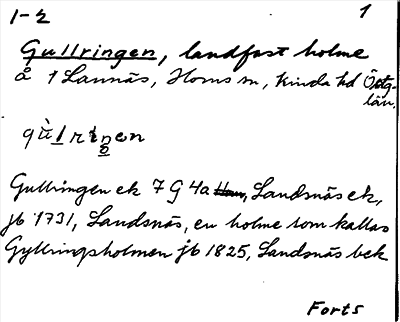 1-2 1
Gullringen, landfast holme
å 1 Lannäs, Horns sn, Kinda hd Östg.
län.
gùlriŋen
Gullringen ek 7 G 4a Landsnäs ek,
jb 1731, Landsnäs, en holme som kallas
Gyllringsholmen jb 1825, Landsnäs bek
Forts